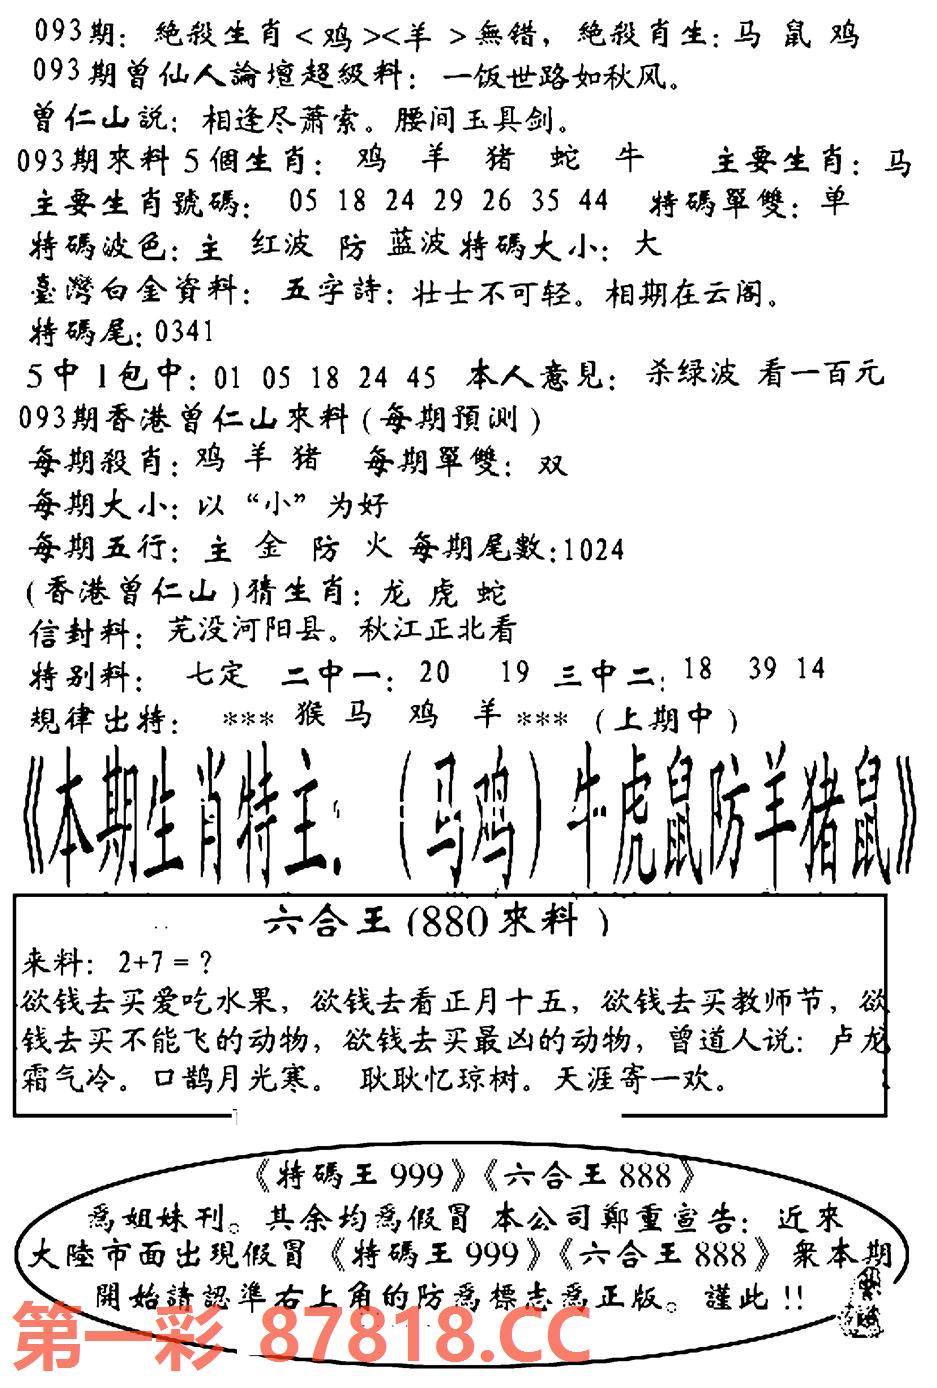 093期: 絶殺生肖<鸡><羊>無错，絶殺肖生: 马 鼠 鸡
093期曾仙人論壇超級料: 一饭世路如秋风。
曾仁山説: 相逢尽萧索。腰间玉具剑。
093期來料5個生肖: 鸡 羊 猪 蛇 牛 主要生肖: 马
主要生肖號碼: 05 18 24 29 26 35 44 特碼單雙: 单
特碼波色: 主 红波 防 蓝波 特碼大小: 大
臺灣白金資料: 五字詩: 壮士不可轻。相期在云阁。
特碼尾: 0341
5中1包中: 01 05 18 24 45 本人意見: 杀绿波 看一百元
093期香港曾仁山來料(每期預測)
每期殺肖: 鸡 羊 猪 每期單雙: 双
每期大小: 以“小”为好
每期五行: 主 金 防 火 每期尾數:1024
(香港曾仁山)猜生肖: 龙 虎 蛇
信封料: 芜没河阳县。秋江正北看
特别料: 七定 二中一: 20 19 三中二: 18 39 14
規律出特: *** 猴 马 鸡 羊 *** (上期中)
《本期生肖特主: (马鸡)牛虎鼠防羊猪鼠》
六合王(880來料)
来料: 2+7=?
欲钱去买爱吃水果，欲钱去看正月十五，欲钱去买教师节，欲
钱去买不能飞的动物，欲钱去买最凶的动物，曾道人说: 卢龙
霜气冷。口鹊月光寒。 耿耿忆琼树。天涯寄一欢。
《特碼王999》《六合王888》
爲姐妹刊。其余均爲假冒 本公司鄭重宣告: 近來
大陸市面出現假冒《特碼王999》《六合王888》衆本期
開始請認準右上角的防爲標志爲正版。謹此!!
第一彩 87818.CC